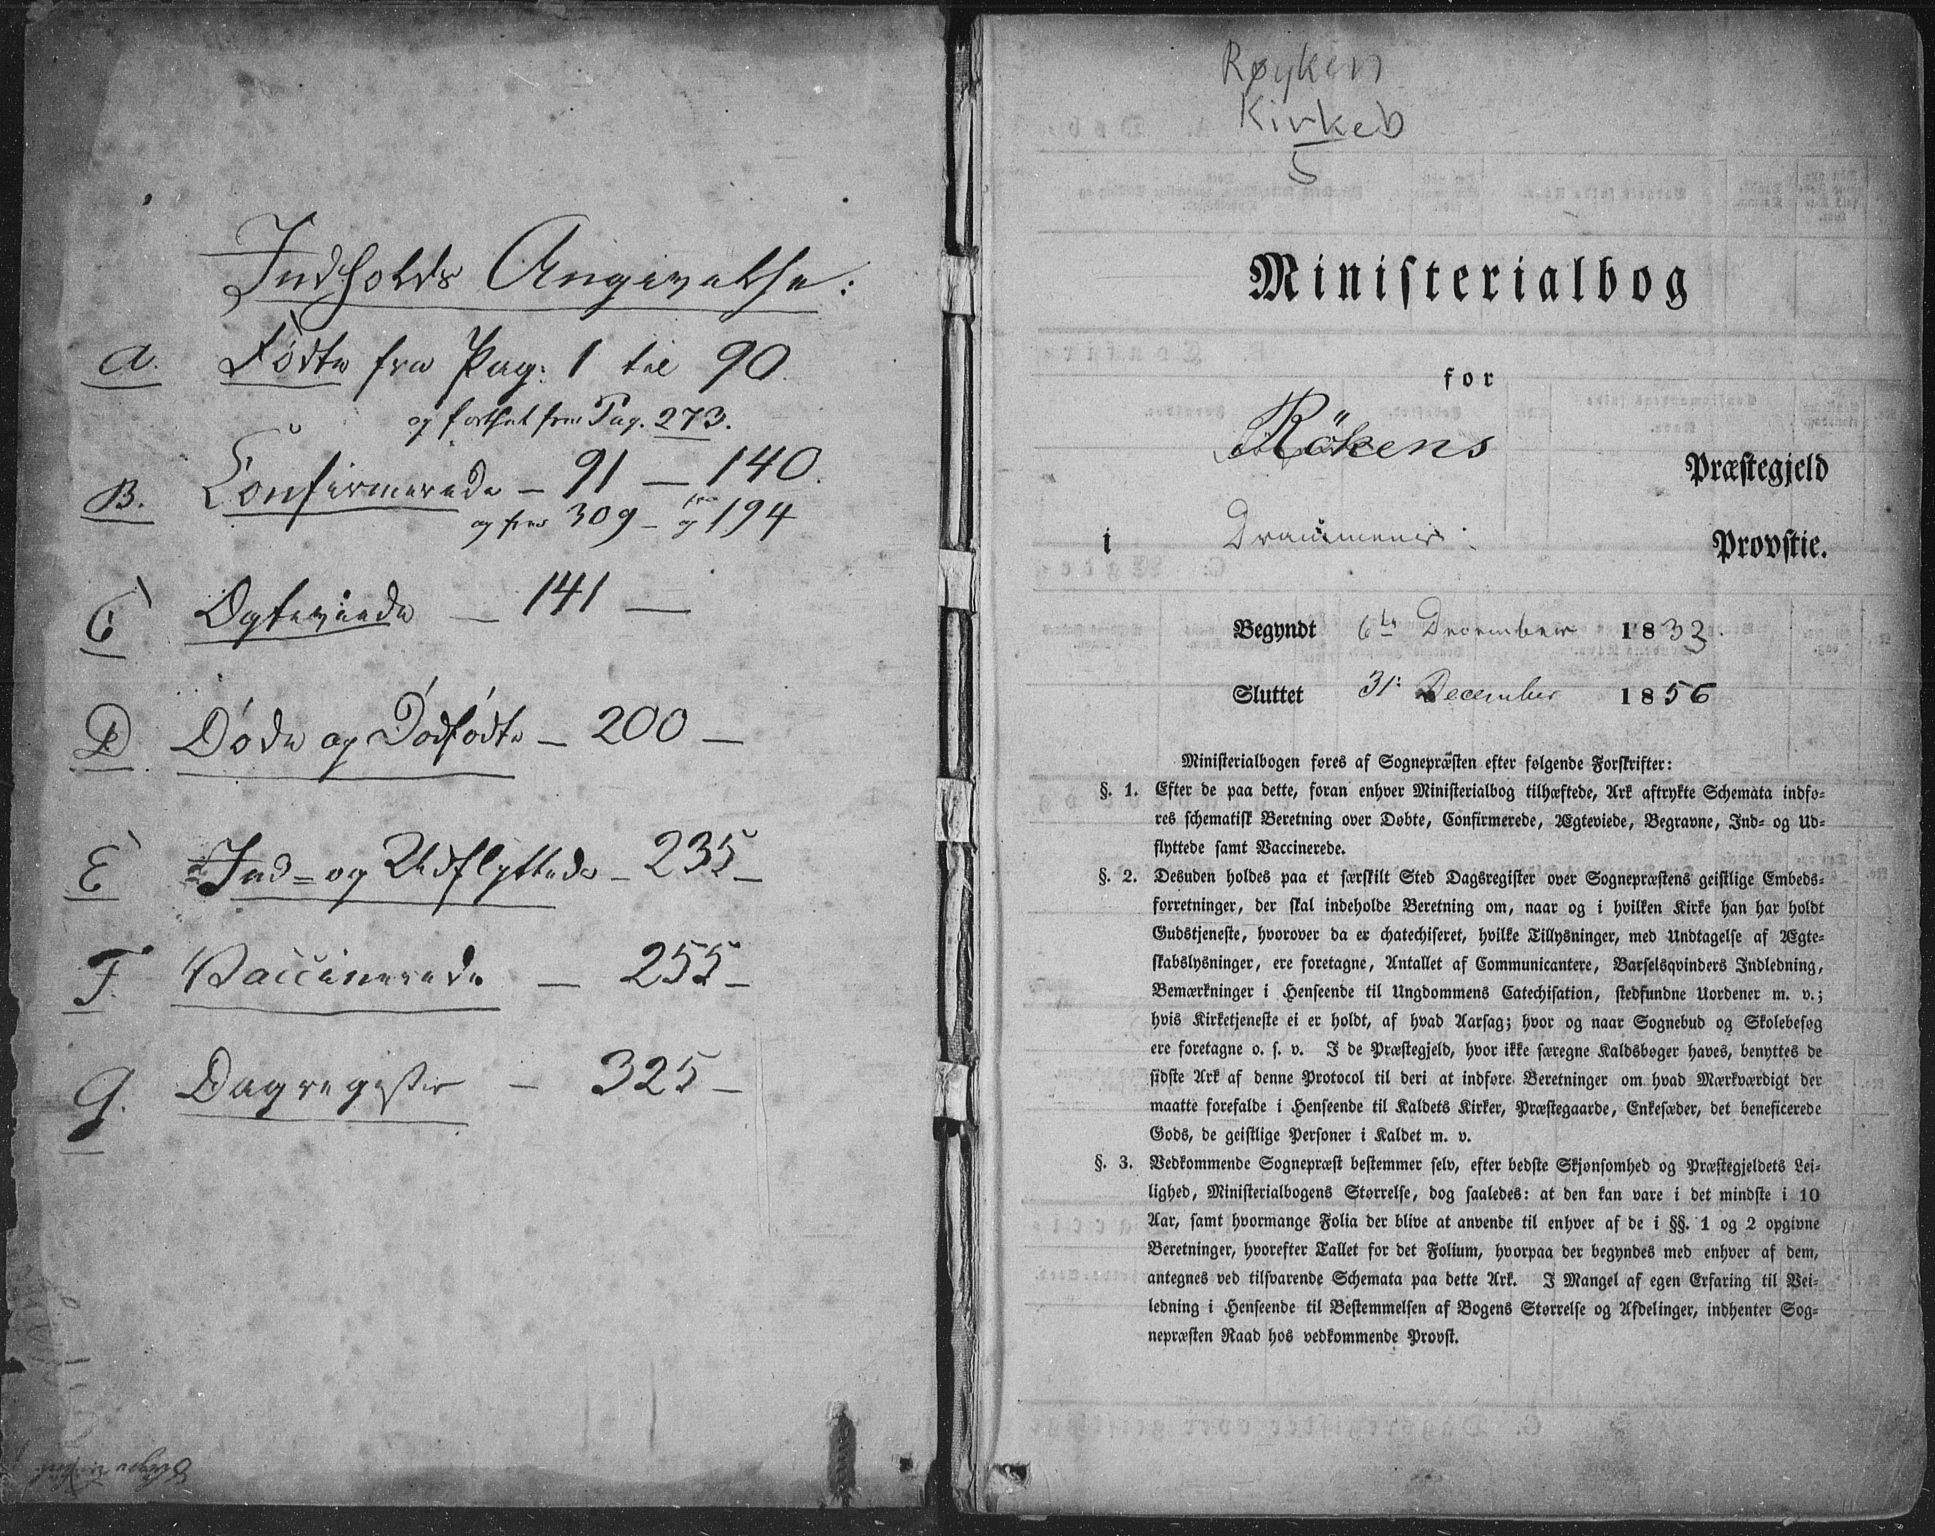 Indholds Angivelse:
A. Fødte fra Pag: 1 til 90.
og fortsat fra Pag. 273.
B. Confirmerede – 91 – 140.
og fra 309 – og fra 194
C Ægteviede – 141 –
D Døde og Dødfødte – 200 –
E Ind- og Udflyttede – 235 –
F. Vaccinerede – 255 –
G. Dagregister – 325 –
Røyken
Kirkeb
5
Ministerialbog
for
Rökens Præstegjeld
i Drammens Provstie.
Begyndt 6te December 1833.
Sluttet 31: December 1856
Ministerialbogen føres af Sognepræsten efter følgende Forskrifter:
§. 1. Efter de paa dette, foran enhver Ministerialbog tilhæftede, Ark aftrykte Schemata indfø-
res schematisk Beretning over Døbte, Confirmerede, Ægteviede, Begravne, Ind- og Ud-
flyttede samt Vaccinerede.
§. 2. Desuden holdes paa et særskilt Sted Dagsregister over Sognepræstens geistlige Embeds-
forretninger, der skal indeholde Beretning om, naar og i hvilken Kirke han har holdt
Gudstjeneste, hvorover da er chatechiseret, hvilke Tillysninger, med Undtagelse af Ægte-
skabslysninger, ere foretagne, Antallet af Communicantere, Barselqvinders Indledning,
Bemærkninger i Henseende til Ungdommens Catechisation, stedfundne Uordener m. v.;
hvis Kirketjeneste ei er holdt, af hvad Aarsag; hvor og naar Sognebud og Skolebesøg
ere foretagne o. s. v. I de Præstegjeld, hvor ikke særegne Kaldsbøger haves, benyttes de
sidste Ark af denne Protocol til deri at indføre Beretninger om hvad Mærkværdigt der
maatte forefalde i Henseende til Kaldets Kirker, Præstegaarde, Enkesæder, det beneficerede
Gods, de geistlige Personer i Kaldet m. v.
§. 3. Vedkommende Sognepræst bestemmer selv, efter bedste Skjønsomhed og Præstegjeldets Lei-
lighed, Ministerialbogens Størrelse, dog saaledes: at den kan vare i det mindste i 10
Aar, samt hvormange Folia der blive at anvende til enhver af de i §§. 1 og 2 opgivne
Beretninger, hvorefter Tallet for det Folium, hvorpaa der begyndes med enhver af dem,
antegnes ved tilsvarende Schemata paa dette Ark. I Mangel af egen Erfaring til Vei-
ledning i Henseende til Bestemmelsen af Bogens Størrelse og Afdelinger, indhenter Sog-
nepræsten Raad hos vedkommende Provst.